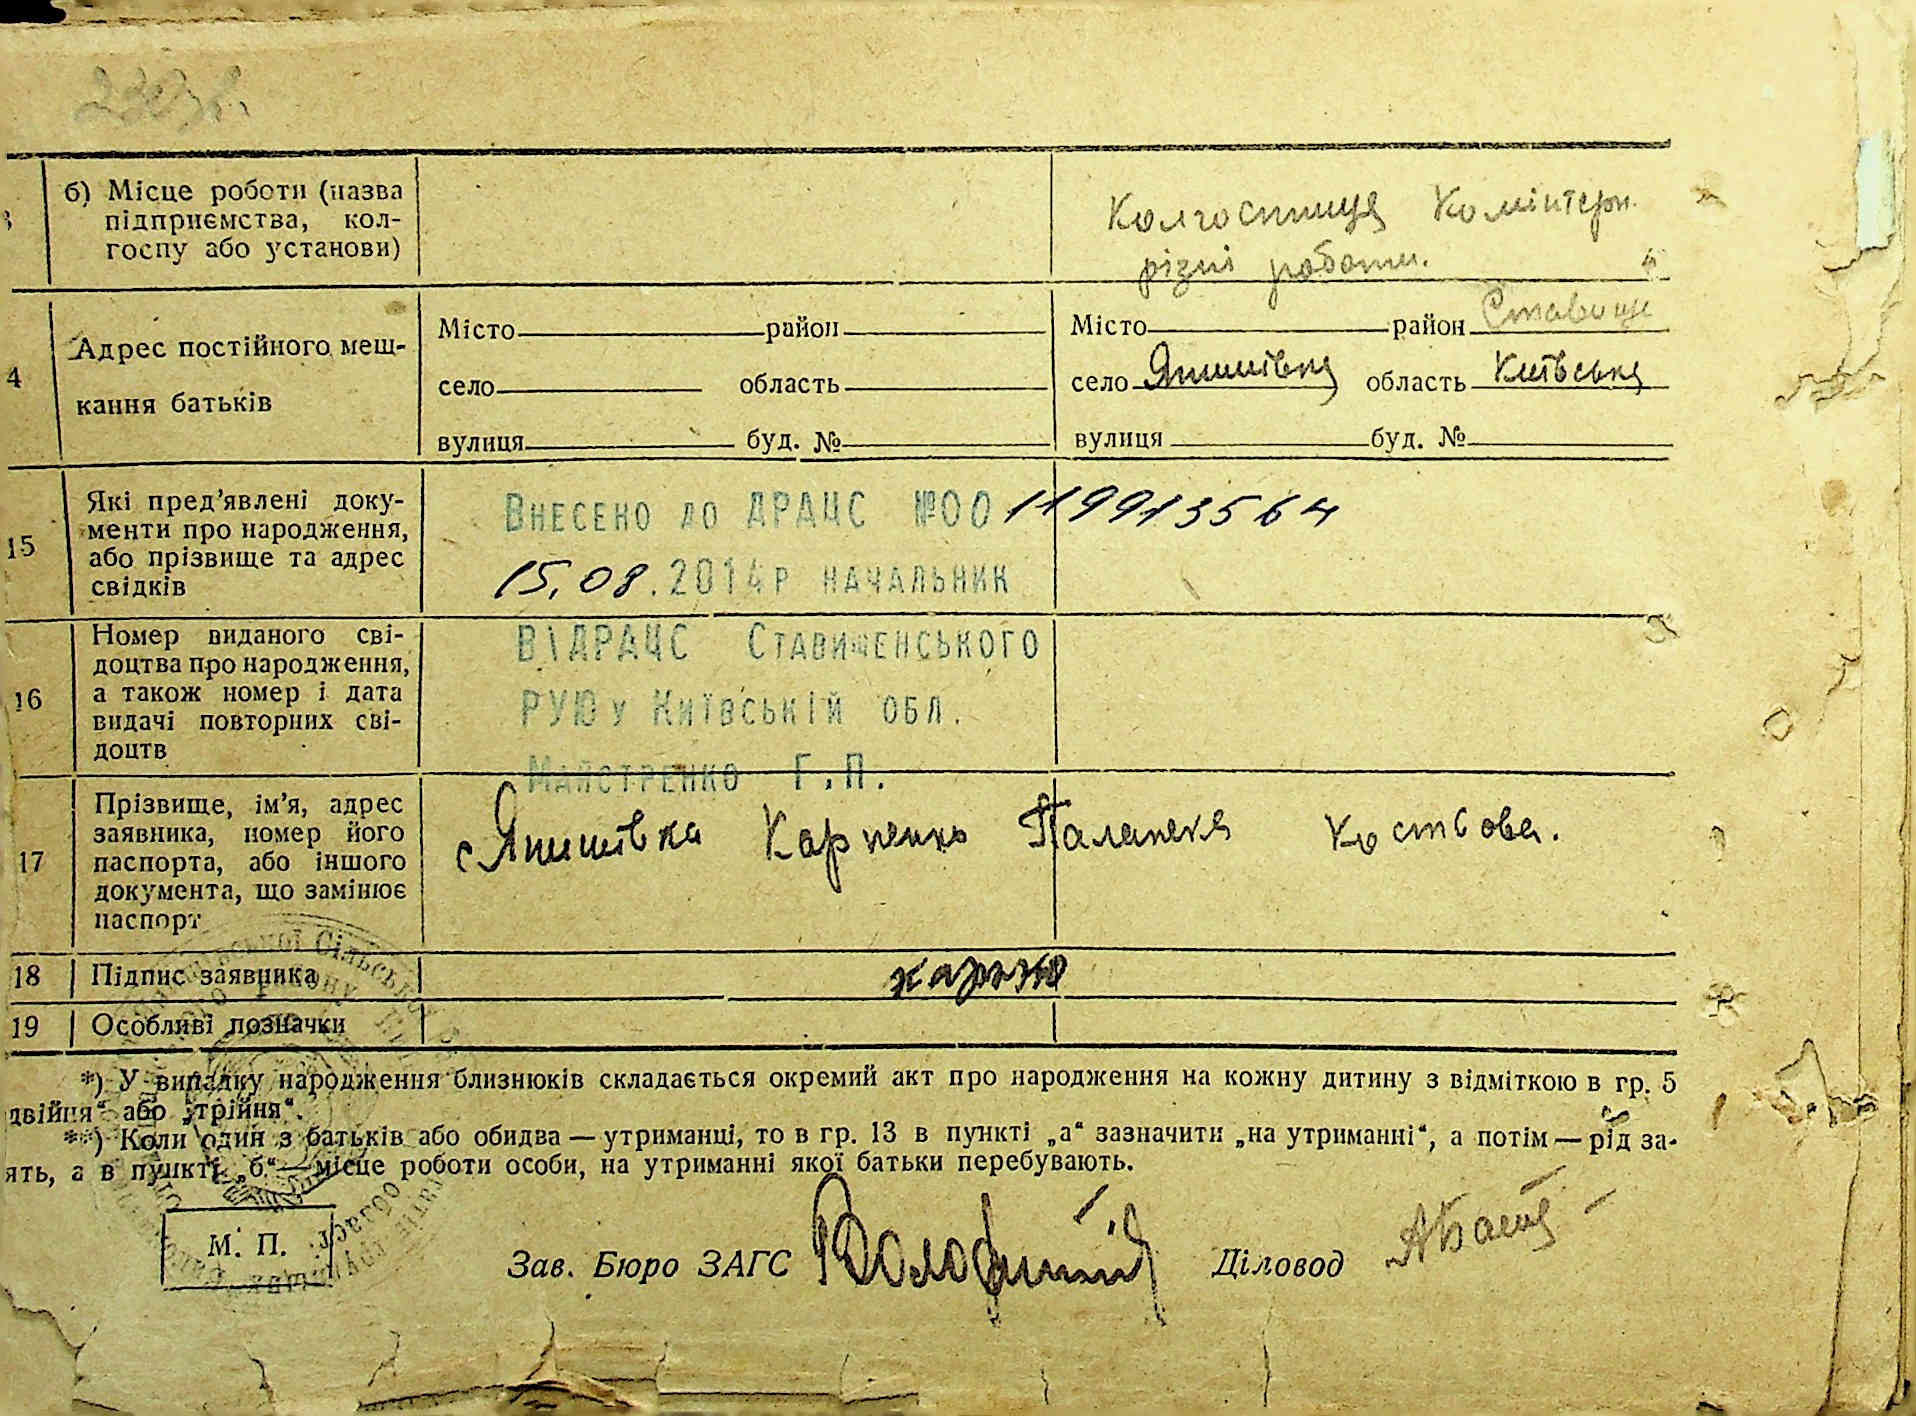 б) Місце роботи (назва
підприємства, кол-
госпу або установи)
Колгоспниця Комінтерн
різні роботи.
4
Адрес постійного меш-
кання батьків
Місто район
село область
вулиця буд. №
Місто район Ставище
село Янишівка область Київська
вулиця буд. №
15
Які пред’явлені доку-
менти про народження,
або прізвище та адрес
свідків
Внесено до ДРАЦС №00 119913564
15.08.2014р начальник
ВІДРАЦС Ставищенського
РУЮ у Київській обл.
Майстренко Г.П.
16
Номер виданого сві-
доцтва про народження,
а також номер і дата
видачі повторних сві-
доцтв
17
Прізвище, ім’я, адрес
заявника, номер його
паспорта, або іншого
документа, що замінює
паспорт
с Янишівка Карпенко
18 Підпис заявника
19 Особливі позначки
*) У випадку народження близнюків складається окремий акт про народження на кожну дитину з відміткою в гр. 5
двійня“ або „трійня“.
**) Коли один з батьків або обидва — утриманці, то в гр. 13 в пункті „а“ зазначити „на утриманні“, а потім — рід за-
ять, а в пункті „б“ — місце роботи особи, на утриманні якої батьки перебувають.
М. П.
Зав. Бюро ЗАГС
Діловод